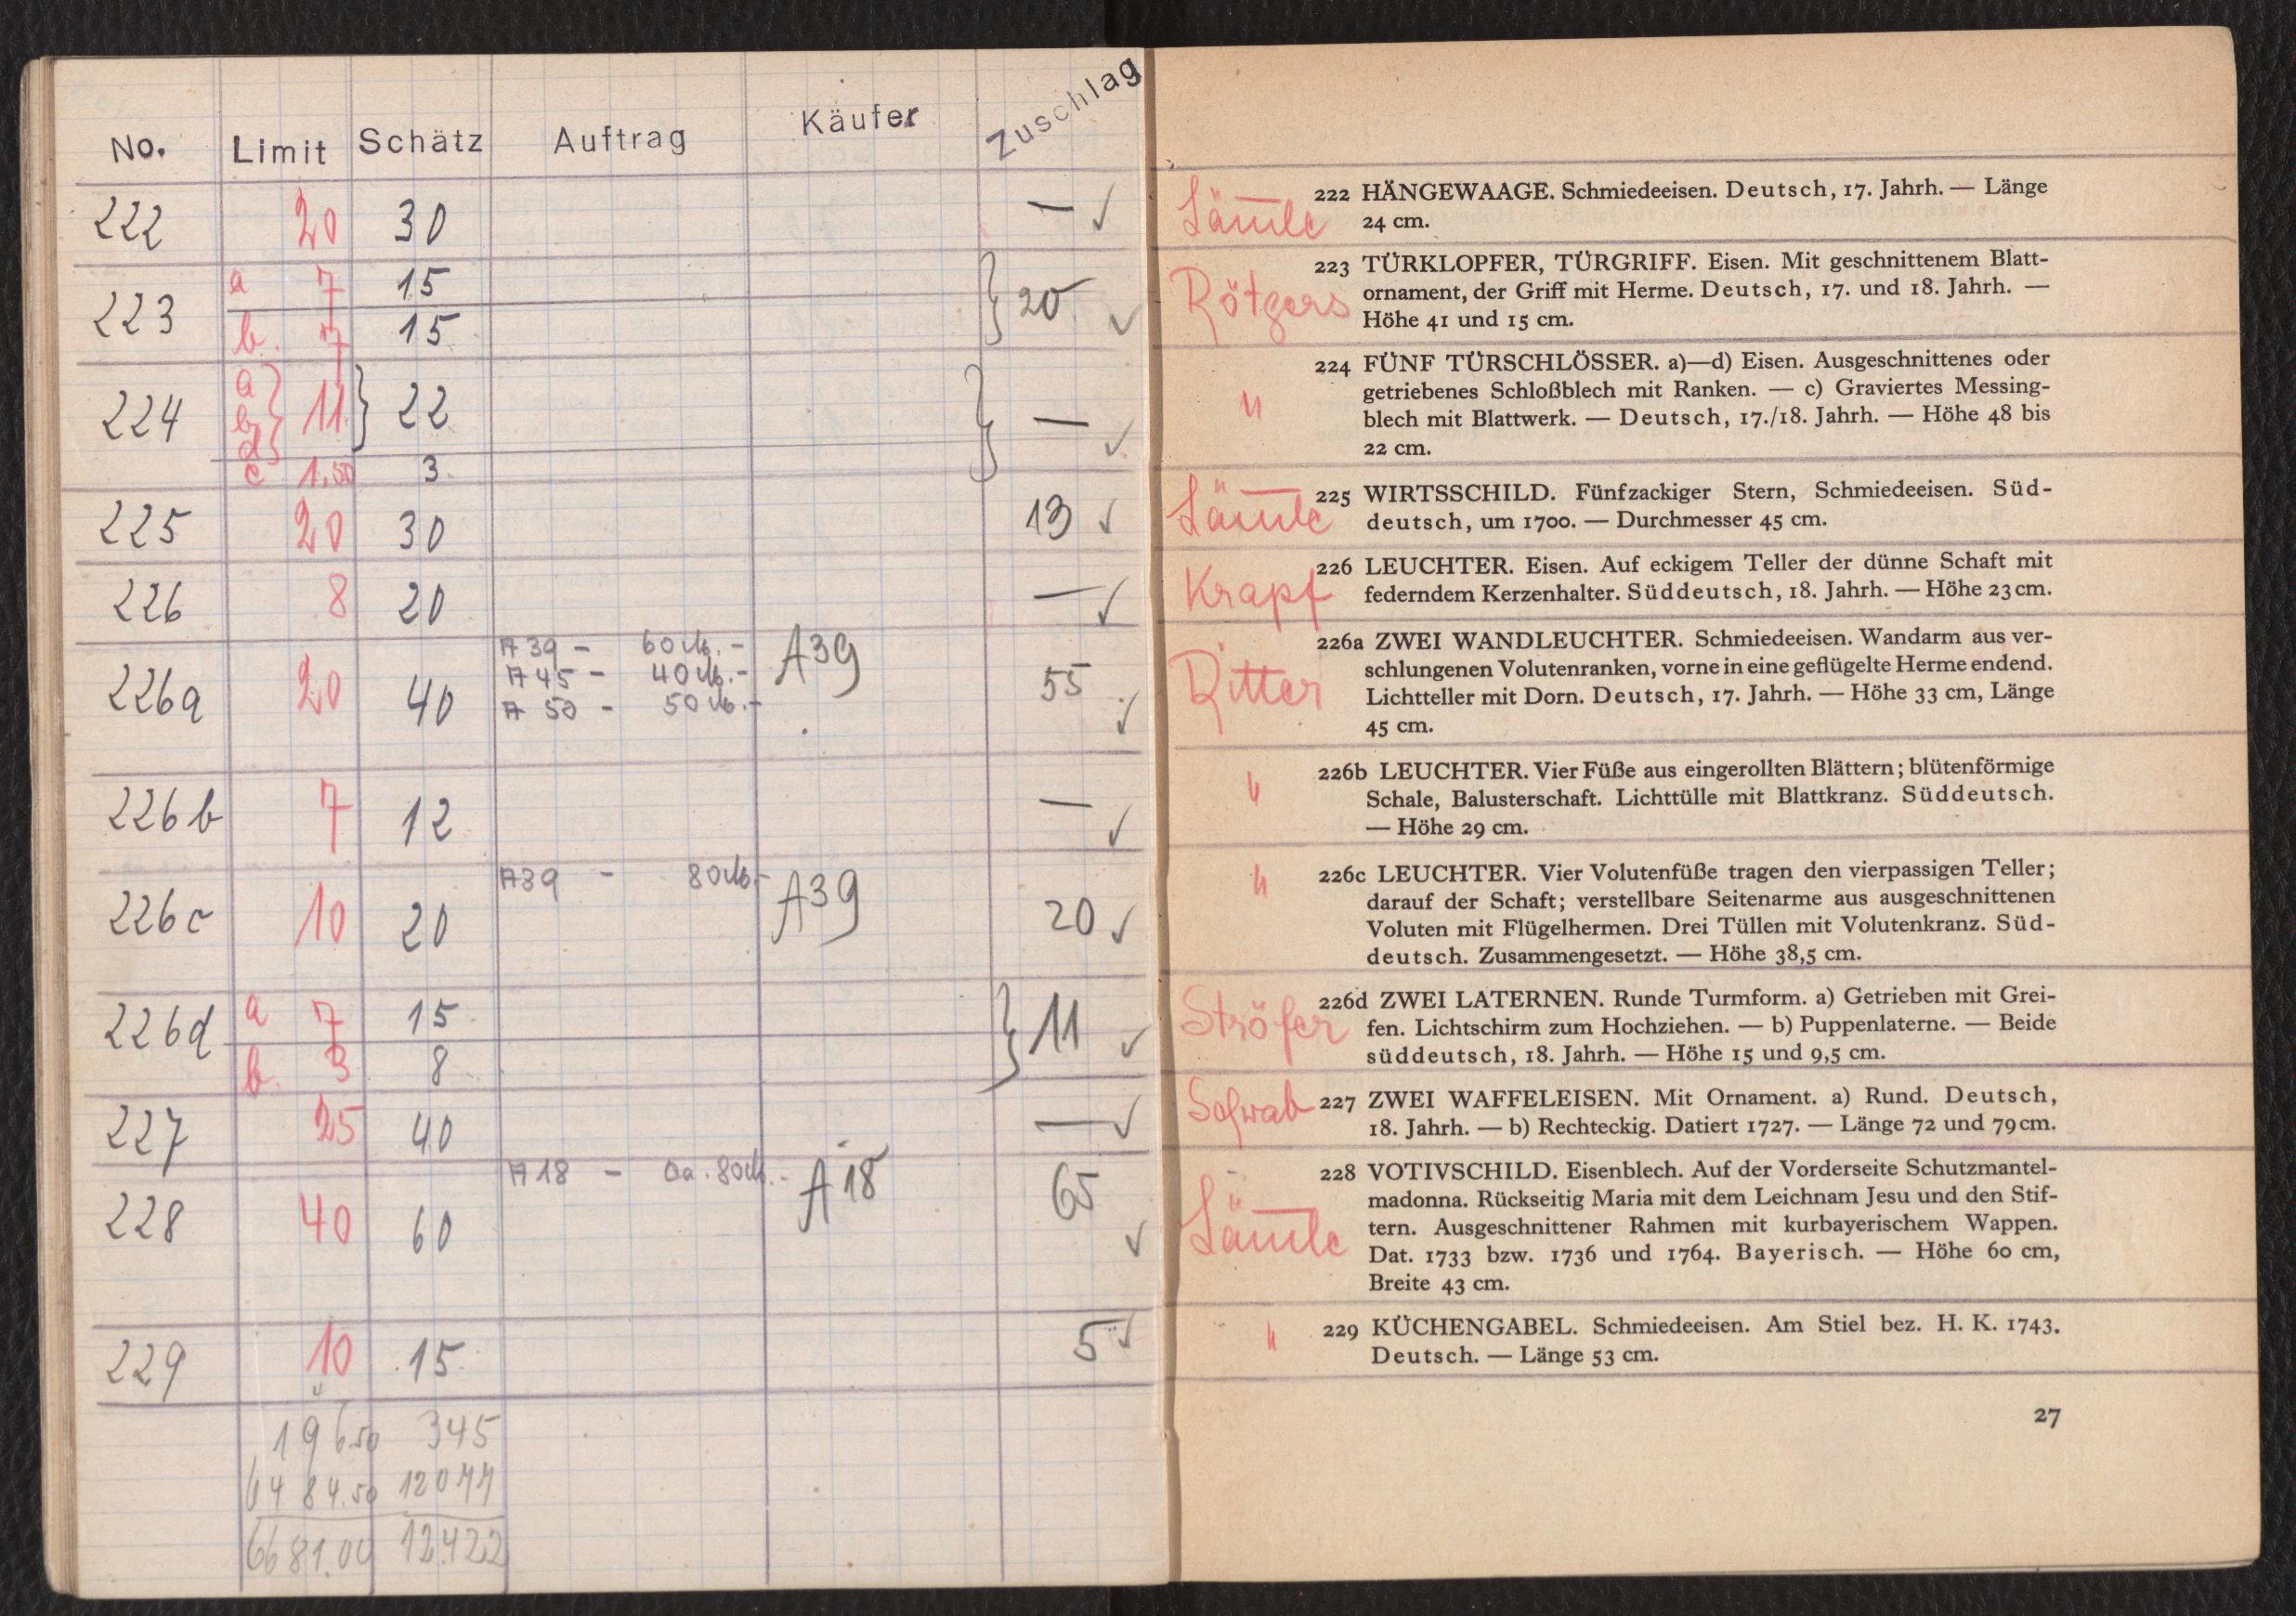 No. Limit Schätz Auftrag Käufer Zuschlag
222 20 30 — ✓
223 a 7 15 } 20 ✓
b. 7 15
224 a b d } 11 } 22 } — ✓
c 1.50 3.
225 20 30 13 ✓
226 8 20 — ✓
226a 20 40 A39 55 ✓
A 39 – 60 M. –
A 45 – 40 M. –
A 50 – 50 M. –
226b 7 12 — ✓
226c 10 20 A39 – 80 M. – A39 20 ✓
226d a 7 15 } 11 ✓
b. 3 8
227 25 40 — ✓
228 40 60 A 18 – 80 M. – A 18 65 ✓
229 10 15 5 ✓
196.50 345
6484.50 12077
6681.00 12422
222 HÄNGEWAAGE. Schmiedeeisen. Deutsch, 17. Jahrh. — Länge
24 cm.
Rötgers
223 TÜRKLOPFER, TÜRGRIFF. Eisen. Mit geschnittenem Blatt-
ornament, der Griff mit Herme. Deutsch, 17. und 18. Jahrh. —
Höhe 41 und 15 cm.
"
224 FÜNF TÜRSCHLÖSSER. a)—d) Eisen. Ausgeschnittenes oder
getriebenes Schloßblech mit Ranken. — c) Graviertes Messing-
blech mit Blattwerk. — Deutsch, 17./18. Jahrh. — Höhe 48 bis
22 cm.
225 WIRTSSCHILD. Fünfzackiger Stern, Schmiedeeisen. Süd-
deutsch, um 1700. — Durchmesser 45 cm.
Krapf
226 LEUCHTER. Eisen. Auf eckigem Teller der dünne Schaft mit
federndem Kerzenhalter. Süddeutsch, 18. Jahrh. — Höhe 23 cm.
Ritter
226a ZWEI WANDLEUCHTER. Schmiedeeisen. Wandarm aus ver-
schlungenen Volutenranken, vorne in eine geflügelte Herme endend.
Lichtteller mit Dorn. Deutsch, 17. Jahrh. — Höhe 33 cm, Länge
45 cm.
"
226b LEUCHTER. Vier Füße aus eingerollten Blättern; blütenförmige
Schale, Balusterschaft. Lichttülle mit Blattkranz. Süddeutsch.
— Höhe 29 cm.
"
226c LEUCHTER. Vier Volutenfüße tragen den vierpassigen Teller;
darauf der Schaft; verstellbare Seitenarme aus ausgeschnittenen
Voluten mit Flügelhermen. Drei Tüllen mit Volutenkranz. Süd-
deutsch. Zusammengesetzt. — Höhe 38,5 cm.
Ströfer
226d ZWEI LATERNEN. Runde Turmform. a) Getrieben mit Grei-
fen. Lichtschirm zum Hochziehen. — b) Puppenlaterne. — Beide
süddeutsch, 18. Jahrh. — Höhe 15 und 9,5 cm.
Schwab
227 ZWEI WAFFELEISEN. Mit Ornament. a) Rund. Deutsch,
18. Jahrh. — b) Rechteckig. Datiert 1727. — Länge 72 und 79 cm.
228 VOTIVSCHILD. Eisenblech. Auf der Vorderseite Schutzmantel-
madonna. Rückseitig Maria mit dem Leichnam Jesu und den Stif-
tern. Ausgeschnittener Rahmen mit kurbayerischem Wappen.
Dat. 1733 bzw. 1736 und 1764. Bayerisch. — Höhe 60 cm,
Breite 43 cm.
"
229 KÜCHENGABEL. Schmiedeeisen. Am Stiel bez. H. K. 1743.
Deutsch. — Länge 53 cm.
27